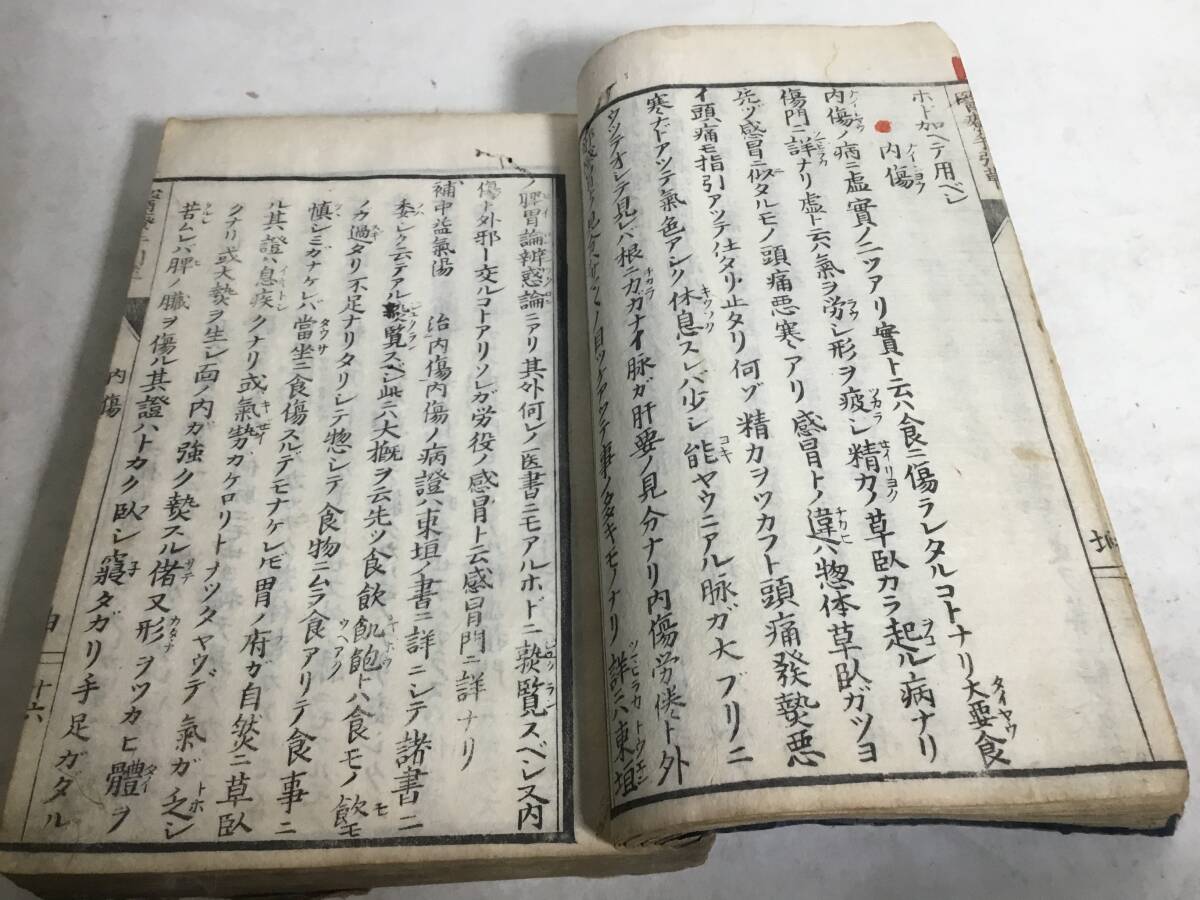 ホド加ヘテ用ベシ
内傷
内傷ノ病ニ虚實ノ二ツアリ實ト云ハ食ニ傷ラレタルコトナリ大要食
傷門ニ詳ナリ虚ト云ハ氣ヲ労シ形ヲ疲シ精力ノ草臥カラ起ル病ナリ
先ヅ感冒ニ似タルモノ頭痛悪寒アリ感冒トノ違ハ惣体草臥ガツヨ
イ頭痛モ指引アツテ仕タリ止タリ何ゾ精力ヲツカフト頭痛發熱悪
寒ナドアツテ氣色アシク休息スレバ少シ能ヤウニアル脉ガ大ブリニ
ウツテオシテ見レバ根ニカガナイ脉ガ肝要ノ見分ナリ内傷労倦ト外
事ノタキモノナリ詳ニハ東垣
ノ脾胃論辨惑論ニアリ其外何レノ医書ニモアルホドニ熟覧スベシ又内
傷ト外邪ト交ルコトアリソレガ労役ノ感冒ト云感冒門ニ詳ナリ
補中益氣湯 治内傷内傷ノ病證ハ東垣ノ書ニ詳ニシテ諸書ニ
委シク云テアル熟覧スベシ此ニ大概ヲ云先ツ食飲飢飽トハ食モノ飲モ
ノカ過タリ不足ナリタリシテ惣シテ食物ニムラ食アリテ食事ニ
慎シミガナケレバ當坐ニ食傷スルデモナケレドモ胃ノ府ガ自然ニ草臥
ル其證ハ息疾クナリ或氣勢カケロリトナツタヤウデ氣ガ乏シ
クナリ或大熱ヲ生シ面ノ内ガ強ク熱スル偖又形ヲツカヒ體ヲ
苦ムレバ脾ノ臓ヲ傷ル其證ハトカク臥シ寢タガリ手足ガダル
内傷
十六